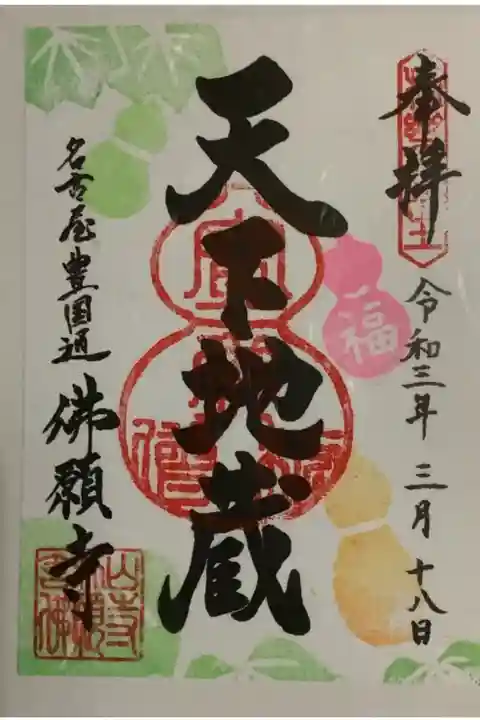 奉拝
令和三年 三月 十八日
福
天下地蔵
名古屋豊国通 佛願寺